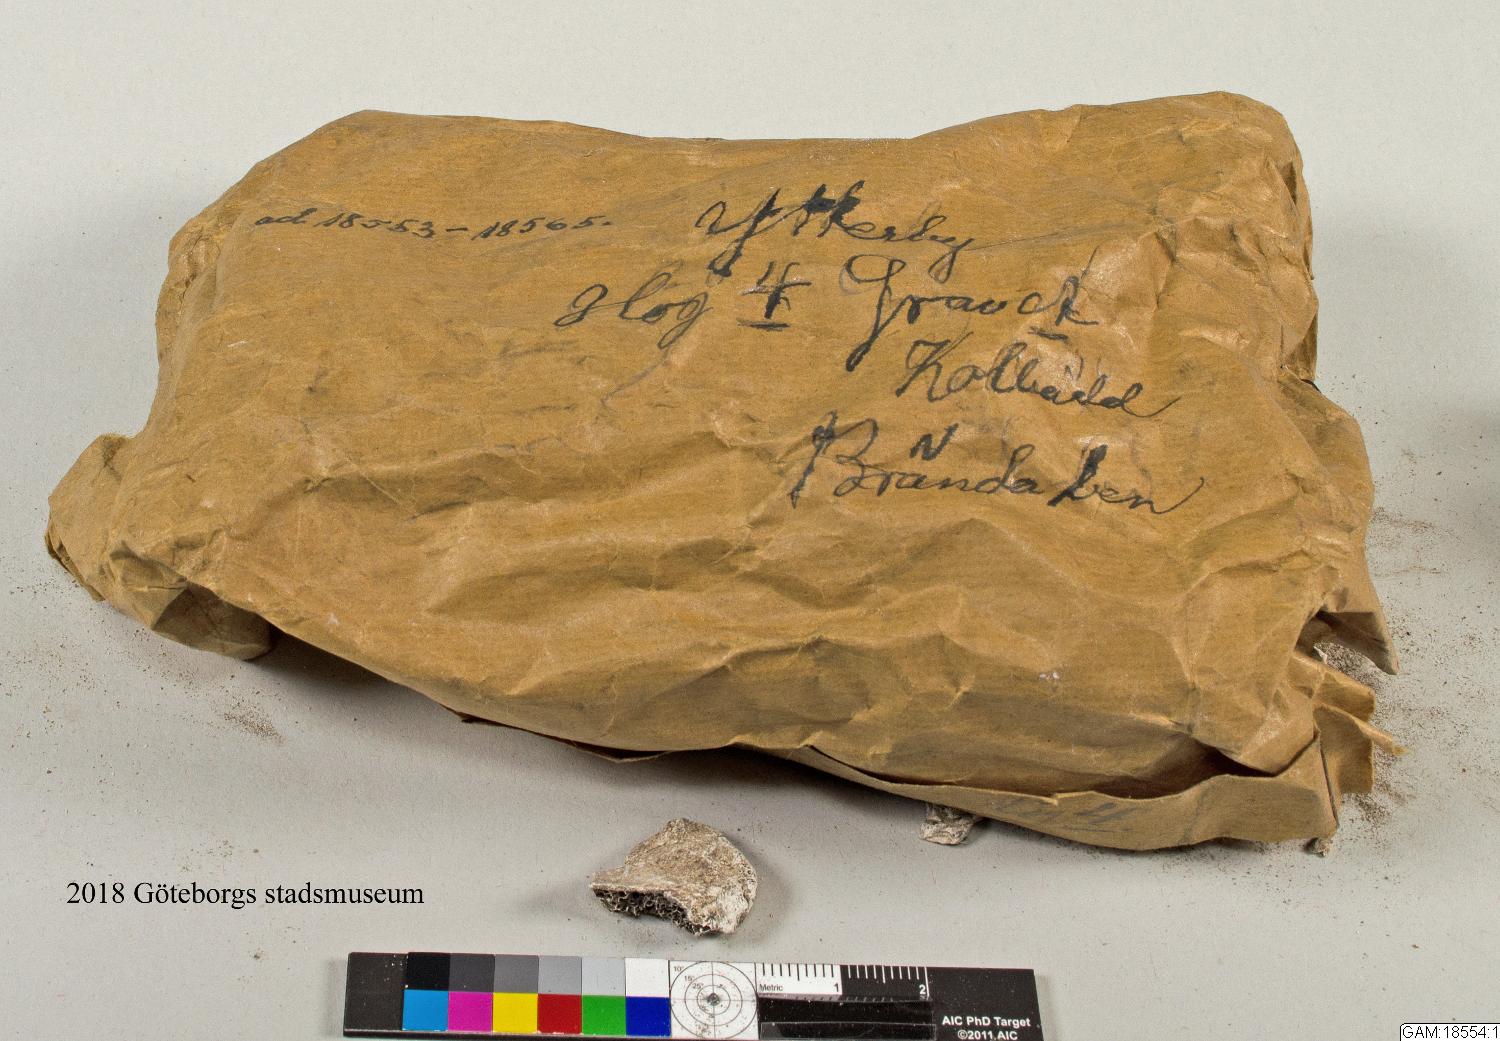 ad 18553-18565.
Ytterby
Hög 4 Gravck
Kolbädd
Brända ben
4.
2018 Göteborgs stadsmuseum
10°
15°
25°
Metric
1
2
AIC PhD Target
©2011,AIC
GAM:18554:1